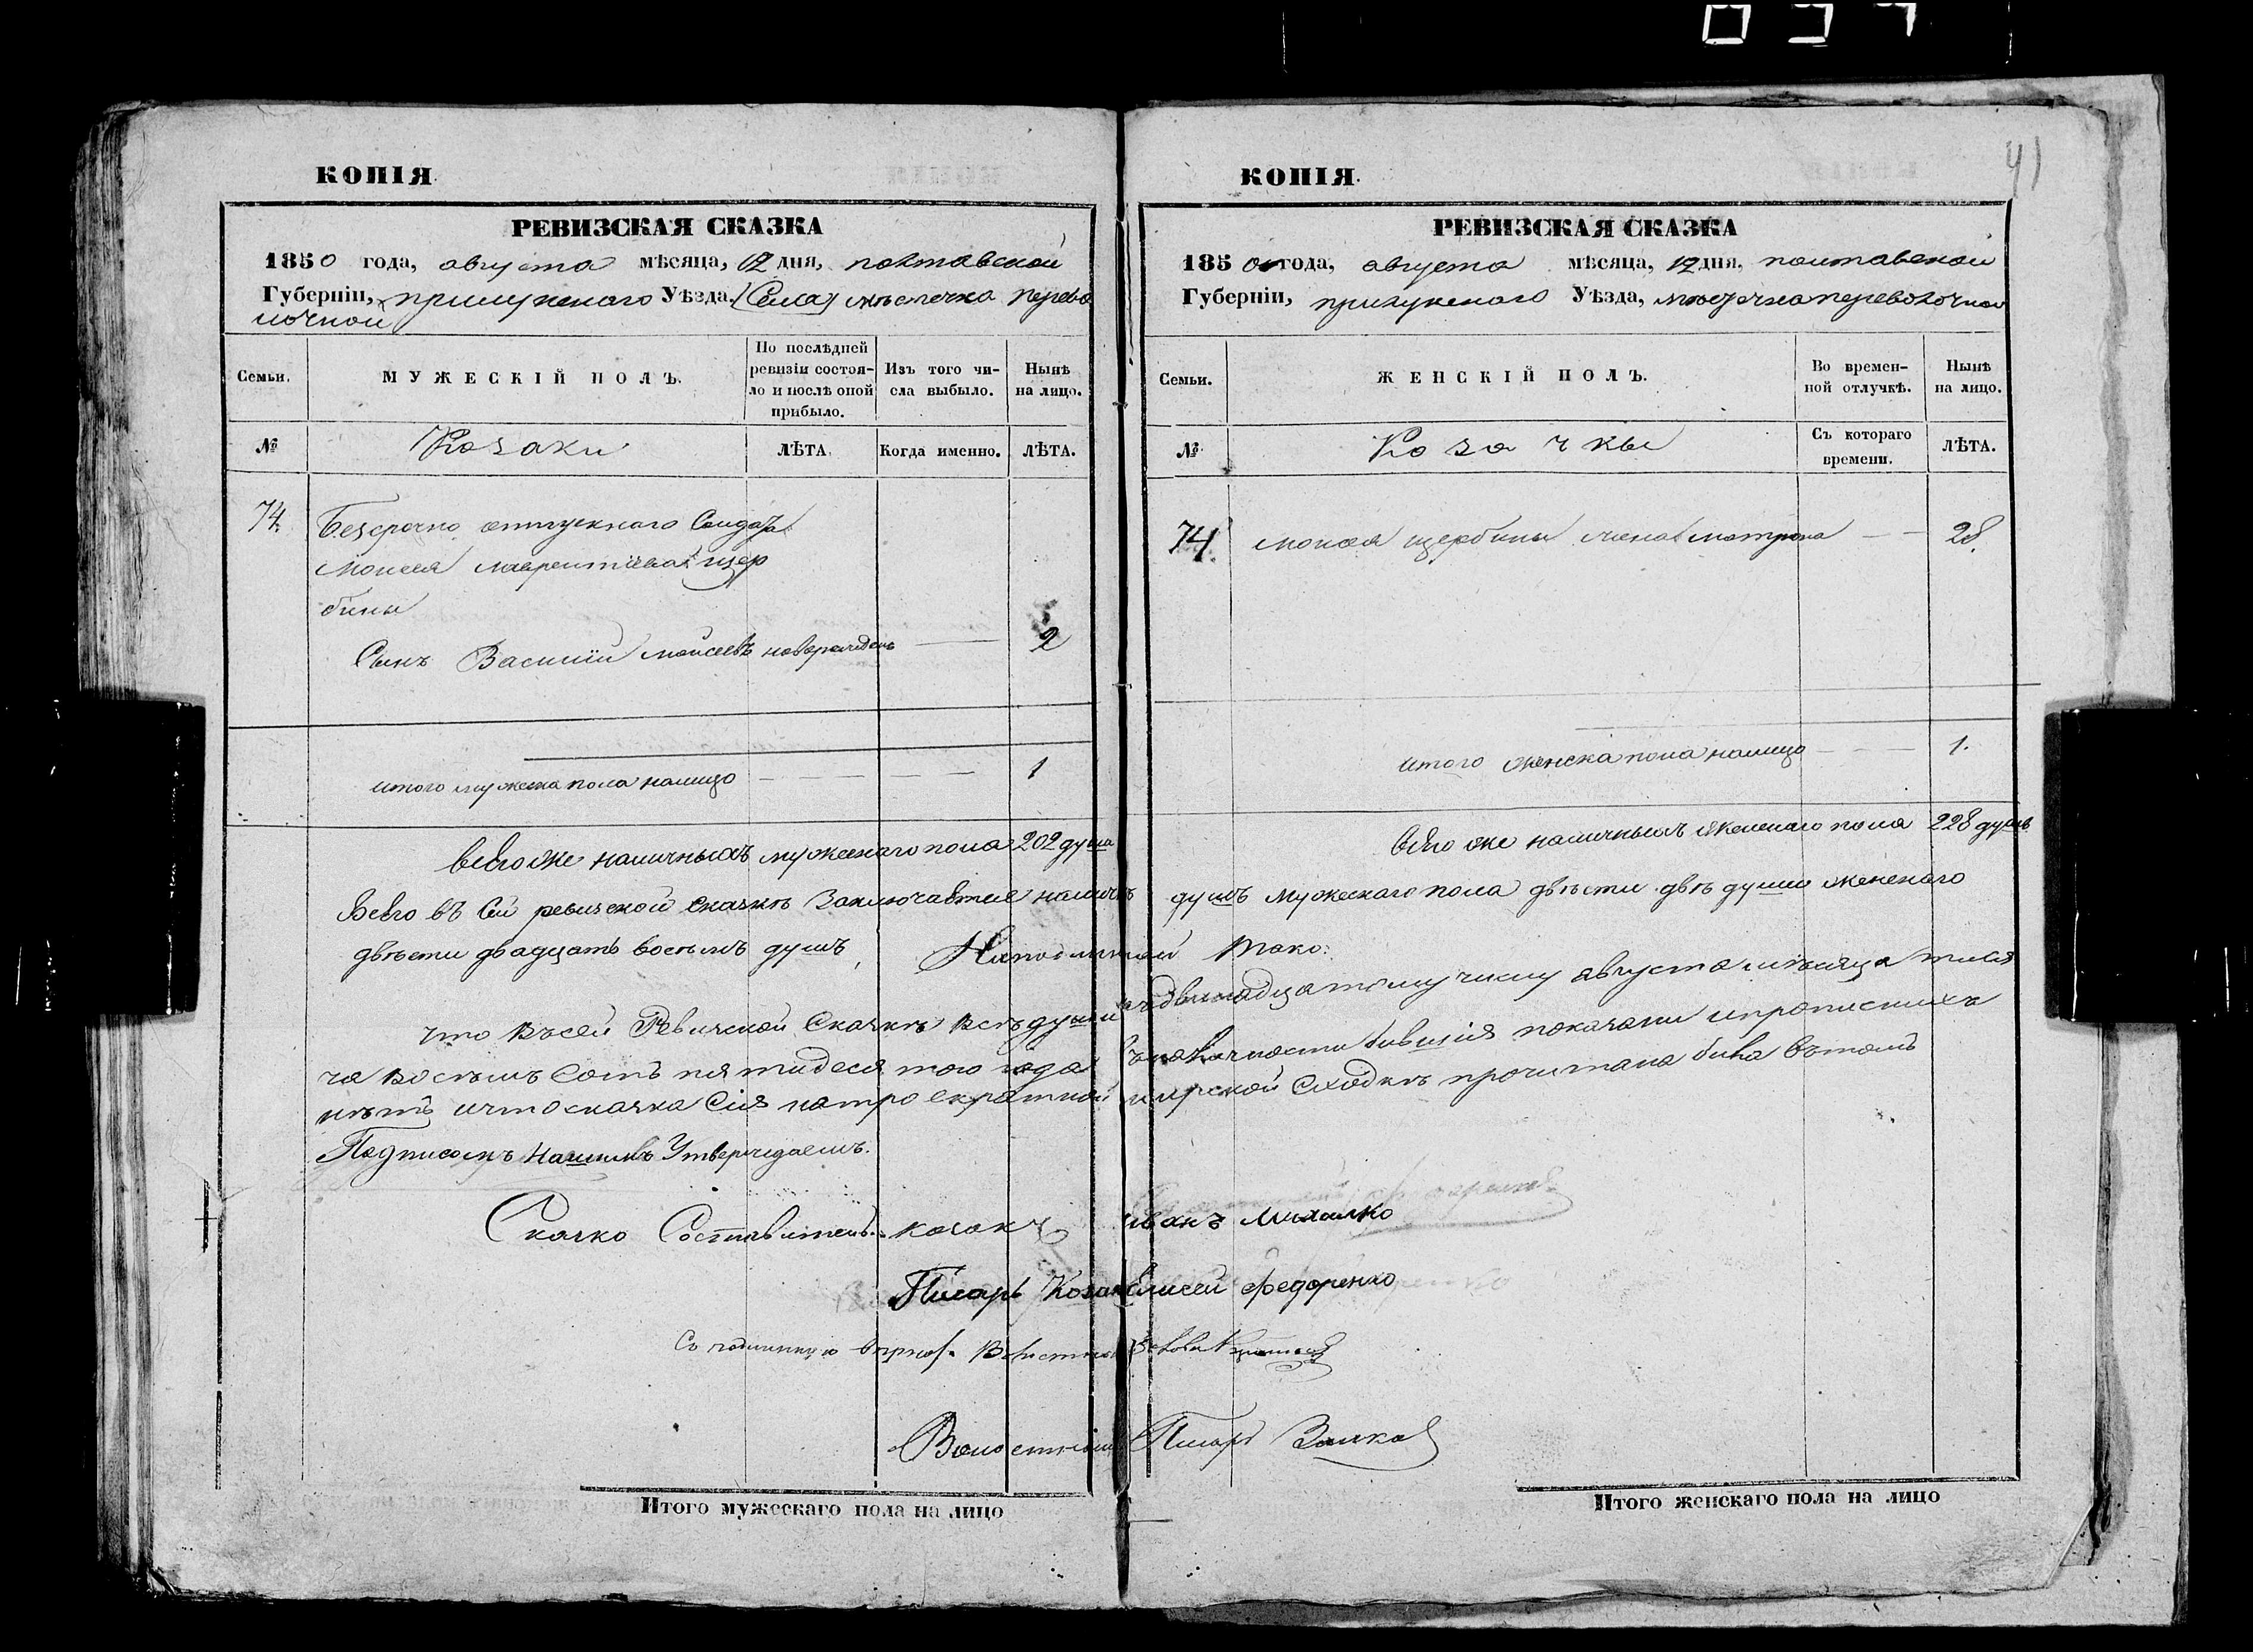 КОПІЯ.
РЕВИЗСКАЯ СКАЗКА
1850 года, августа мѣсяца, 12 дня, полтавской
Губерніи, прилукского Уѣзда, (Села) мѣстечка перево
лочной
Семьи.
МУЖЕСКІЙ ПОЛЪ.
По послѣдней
ревизіи состоя-
ло и послѣ оной
прибыло.
Изъ того чи-
сла выбыло.
Нынѣ
на лицо.
№
Козаки
ЛѢТА.
Когда именно.
ЛѢТА.
74.
Безсрочно отпускного Солдата
Моисея Лаврентіева щер
бины
Сынъ Василій Моисеевъ новорожденъ 2
итого мужеска пола налицо 1
всего же наличныхъ мужескаго пола 202 душа
КОПІЯ.
41
РЕВИЗСКАЯ СКАЗКА
1850 года, августа мѣсяца, 12 дня, полтавской
Губерніи, прилукского Уѣзда, мѣстечка переволочной
Семьи.
ЖЕНСКІЙ ПОЛЪ.
Во времен-
ной отлучкѣ.
Нынѣ
на лицо.
№
Козачки
Съ котораго
времени.
ЛѢТА.
74. Моисея щербины жена Матрона 28.
итого женска пола налицо 1.
всего же наличныхъ женскаго пола 228 душъ
Всего въ сей ревизской сказкѣ заключается наличн душъ мужескаго пола двѣсти двѣ души женского
двѣсти двадцать восемъ душъ, На подлинной тако:
что въ сей Ревизской Сказкѣ всѣ души двѣнадцатому числу августа мѣсяца тися
ча восемъ сотъ пятидесятого года показани и прописнихъ
нѣтъ и что сказка сія на троекратной мирской сходкѣ прочитана била въ томъ
Подписомъ нашимъ Утверждаемъ.
Сказко Составитель козакъ иванъ михалко
Писарь Козакъ Елисей Федоренко
Съ подлинную вѣрно.
Волостный Писарь
Итого мужескаго пола на лицо
Итого женскаго пола на лицо